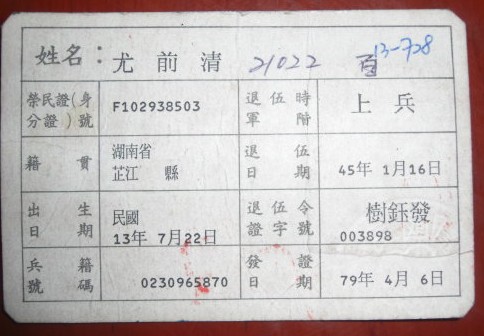 姓名：尤前清 21022 百 13-728
榮民證(身分證)號 F102938503 退伍時軍階 上兵
籍貫 湖南省芷江 縣 退伍日期 45年 1月16日
出生日期 民國13年 7月22日 退伍令證字號 樹鈺發003898
兵籍號碼 0230965870 發證日期 79年 4月 6日